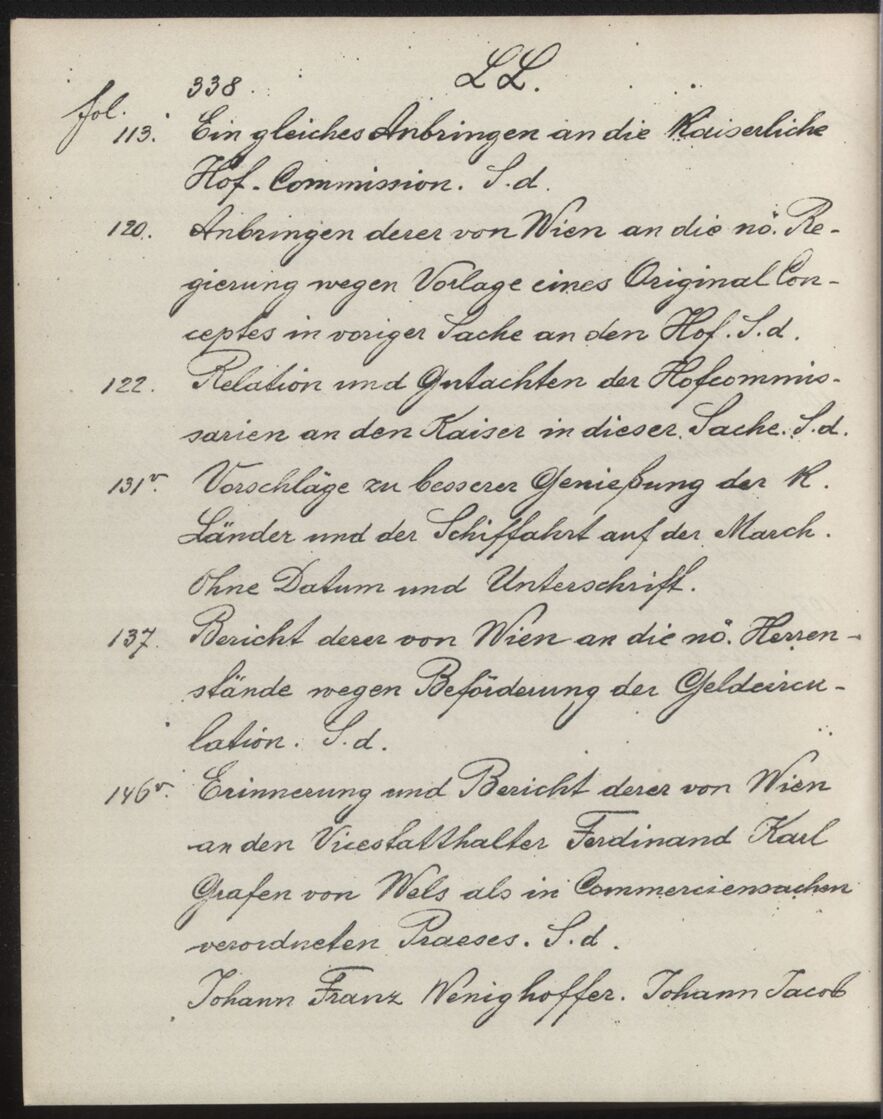 338. LL.
fol. 113. Ein gleiches Anbringen an die Kaiserliche
Hof-Commission. S.d.
120. Anbringen derer von Wien an die nö. Re-
gierung wegen Vorlage eines Original Con-
ceptes in voriger Sache an den Hof. S.d.
122. Relation und Gutachten der Hofcommis-
sarien an den Kaiser in dieser Sache. S.d.
131v. Vorschläge zu besserer Genießung der K.
Länder und der Schiffahrt auf der March.
Ohne Datum und Unterschrift.
137. Bericht derer von Wien an die nö. Herren-
stände wegen Beförderung der Geldcircu-
lation. S.d.
146v. Erinnerung und Bericht derer von Wien
an den Vicestatthalter Ferdinand Karl
Grafen von Wels als in Commerciensachen
verordneten Praeses. S.d.
Johann Franz Wenighoffer. Johann Jacob